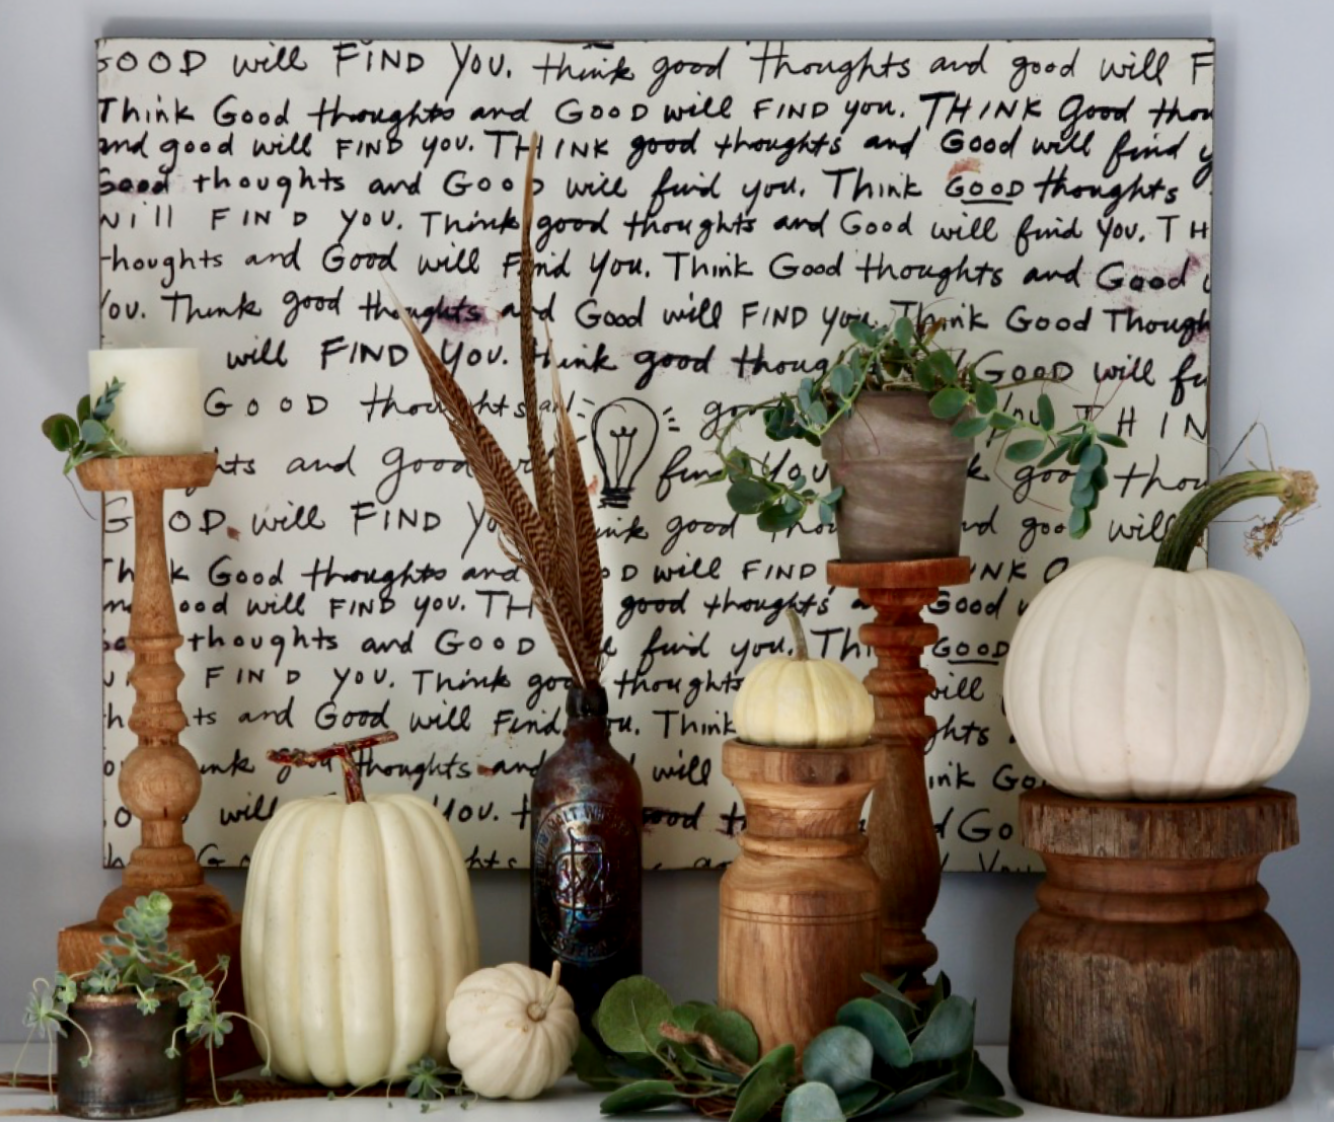 GOOD will FiND You. think good thoughts and good will F
Think Good thoughts and GOOD will FIND you. THINK Good thou
and good will FIND you. THINK good thoughts and Good will find y
Good thoughts and GOOD will find you. Think GOOD thoughts
will FIND YOU. Think good thoughts and Good will find You. TH
houghts and Good will Find You. Think Good thoughts and Good w
You. Think good thoughts and Good will FIND you. Think Good Though
will FIND You. think good thoug d GOOD will fi
GOOD thoughts and go You THIN
hts and good will find You k good thou
GOOD will FIND Yo ink good thou nd good will
Think Good thoughts and OD will FIND INK G
ood will FIND you. TH good thoughts a Good w
thoughts and GOOD find you. Thi GOOD
FIND YOU. Think goo thoughts will
ts and Good will Find You. Think ghts
ink good thoughts and will ink Go
will You. th ood th d Go
G hts go You
MALT WHISKY